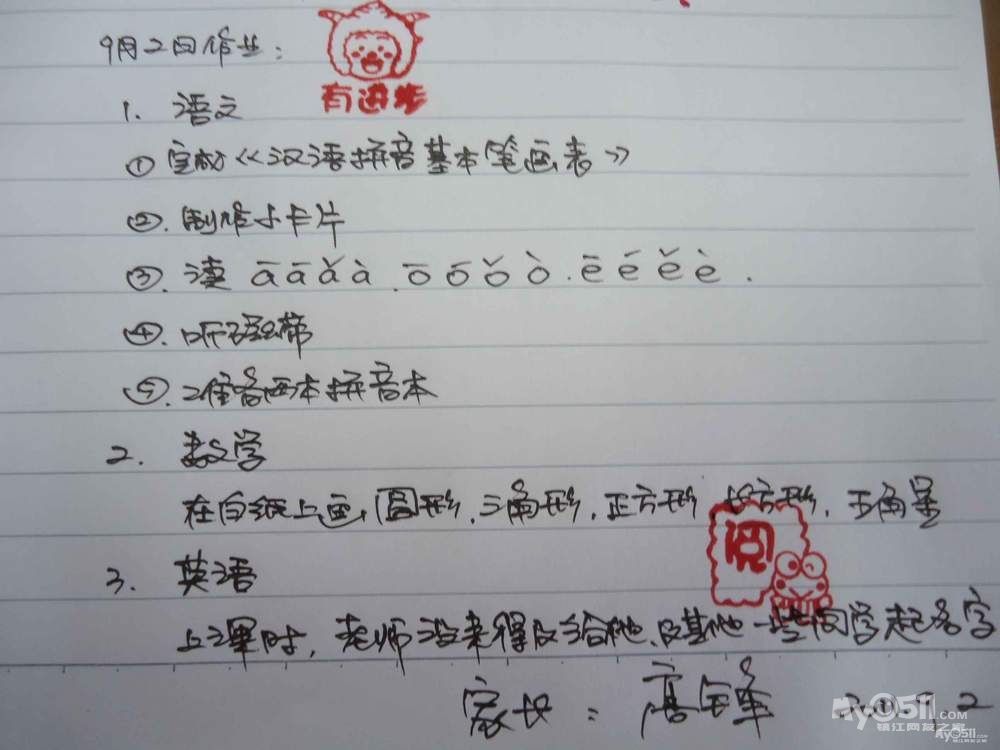 9月2日作业:
有进步
1. 语文
① 完成《汉语拼音基本笔画表》
②. 制作小卡片
③. 读 ā á ǎ à . ō ó ǒ ò . ē é ě è .
④. 听磁带
⑤. 准备两本拼音本
2. 数学
在白纸上画圆形, 三角形, 正方形 长方形, 五角星
阅
3. 英语
上课时, 老师没来得及给他、及其他一些同学起名字
家长: 高 锋
my0511.com
镇江网友之家
my0511.com